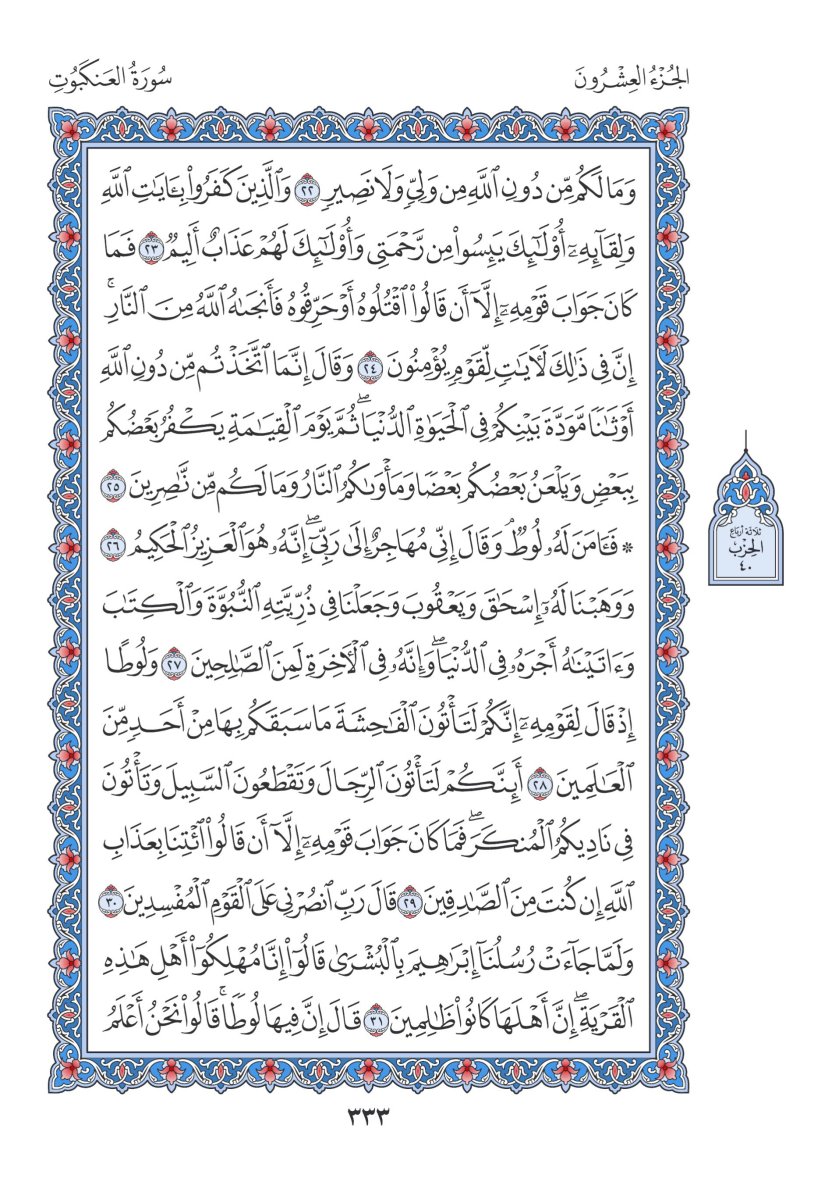 الجُزْءُ العِشْرُونَ
سُورَةُ العَنكَبُوتِ
وَمَا لَكُم مِّن دُونِ ٱللَّهِ مِن وَلِيٍّ وَلَا نَصِيرٍ ٢٢ وَٱلَّذِينَ كَفَرُواْ بِـَٔايَٰتِ ٱللَّهِ
وَلِقَآئِهِۦٓ أُوْلَٰٓئِكَ يَئِسُواْ مِن رَّحْمَتِي وَأُوْلَٰٓئِكَ لَهُمْ عَذَابٌ أَلِيمٌ ٢٣ فَمَا
كَانَ جَوَابَ قَوْمِهِۦٓ إِلَّآ أَن قَالُواْ ٱقْتُلُوهُ أَوْ حَرِّقُوهُ فَأَنجَىٰهُ ٱللَّهُ مِنَ ٱلنَّارِۚ
إِنَّ فِي ذَٰلِكَ لَأٓيَٰتٍ لِّقَوْمٍ يُؤْمِنُونَ ٢٤ وَقَالَ إِنَّمَا ٱتَّخَذْتُم مِّن دُونِ ٱللَّهِ
أَوْثَٰنًا مَّوَدَّةَ بَيْنِكُمْ فِي ٱلْحَيَوٰةِ ٱلدُّنْيَاۖ ثُمَّ يَوْمَ ٱلْقِيَٰمَةِ يَكْفُرُ بَعْضُكُم
بِبَعْضٍ وَيَلْعَنُ بَعْضُكُم بَعْضًا وَمَأْوَىٰكُمُ ٱلنَّارُ وَمَا لَكُم مِّن نَّٰصِرِينَ ٢٥
* فَـَٔامَنَ لَهُۥ لُوطٌۘ وَقَالَ إِنِّي مُهَاجِرٌ إِلَىٰ رَبِّيٓۖ إِنَّهُۥ هُوَ ٱلْعَزِيزُ ٱلْحَكِيمُ ٢٦
وَوَهَبْنَا لَهُۥٓ إِسْحَٰقَ وَيَعْقُوبَ وَجَعَلْنَا فِي ذُرِّيَّتِهِ ٱلنُّبُوَّةَ وَٱلْكِتَٰبَ
وَءَاتَيْنَٰهُ أَجْرَهُۥ فِي ٱلدُّنْيَاۖ وَإِنَّهُۥ فِي ٱلْأٓخِرَةِ لَمِنَ ٱلصَّٰلِحِينَ ٢٧ وَلُوطًا
إِذْ قَالَ لِقَوْمِهِۦٓ إِنَّكُمْ لَتَأْتُونَ ٱلْفَٰحِشَةَ مَا سَبَقَكُم بِهَا مِنْ أَحَدٍ مِّنَ
ٱلْعَٰلَمِينَ ٢٨ أَئِنَّكُمْ لَتَأْتُونَ ٱلرِّجَالَ وَتَقْطَعُونَ ٱلسَّبِيلَ وَتَأْتُونَ
فِي نَادِيكُمُ ٱلْمُنكَرَۖ فَمَا كَانَ جَوَابَ قَوْمِهِۦٓ إِلَّآ أَن قَالُواْ ٱئْتِنَا بِعَذَابِ
ٱللَّهِ إِن كُنتَ مِنَ ٱلصَّٰدِقِينَ ٢٩ قَالَ رَبِّ ٱنصُرْنِي عَلَى ٱلْقَوْمِ ٱلْمُفْسِدِينَ ٣٠
وَلَمَّا جَآءَتْ رُسُلُنَآ إِبْرَٰهِيمَ بِٱلْبُشْرَىٰ قَالُوٓاْ إِنَّا مُهْلِكُوٓاْ أَهْلِ هَٰذِهِ
ٱلْقَرْيَةِۖ إِنَّ أَهْلَهَا كَانُواْ ظَٰلِمِينَ ٣١ قَالَ إِنَّ فِيهَا لُوطًاۚ قَالُواْ نَحْنُ أَعْلَمُ
ثلاثة أرباع
الحزب
٤٠
٣٣٣